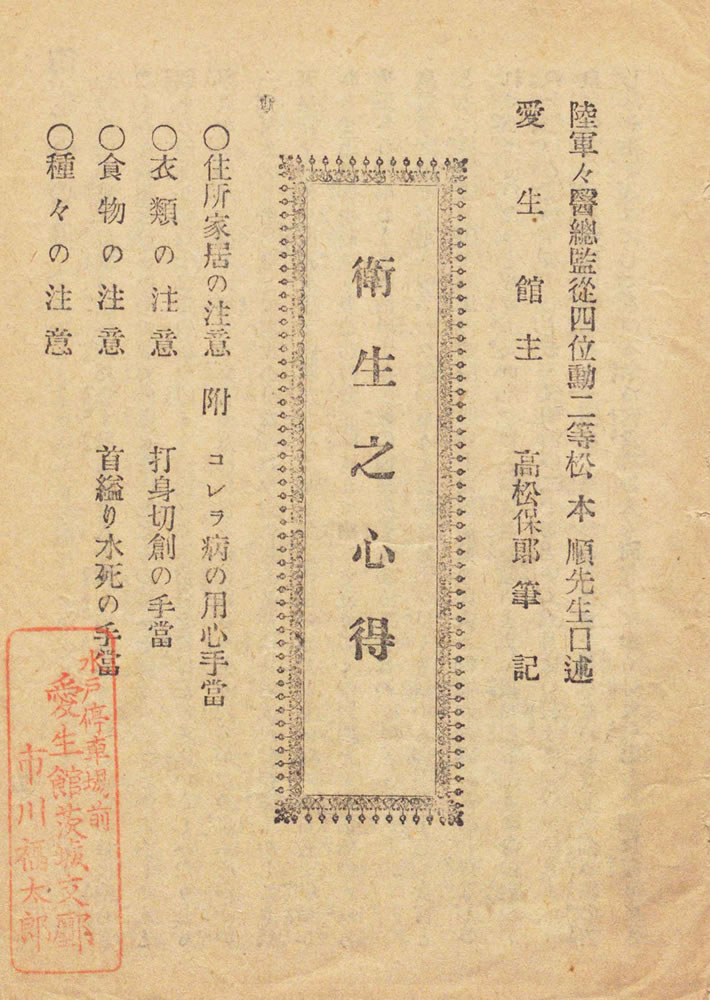 陸軍々醫總監從四位勳二等松本順先生口述
愛生館主 高松保郎筆記
衛生之心得
〇住所家居の注意 附 コレラ病の用心手當
〇衣類の注意 打身切創の手當
〇食物の注意 首縊り水死の手當
〇種々の注意
水戸停車場前
愛生館茨城支部
市川福太郎